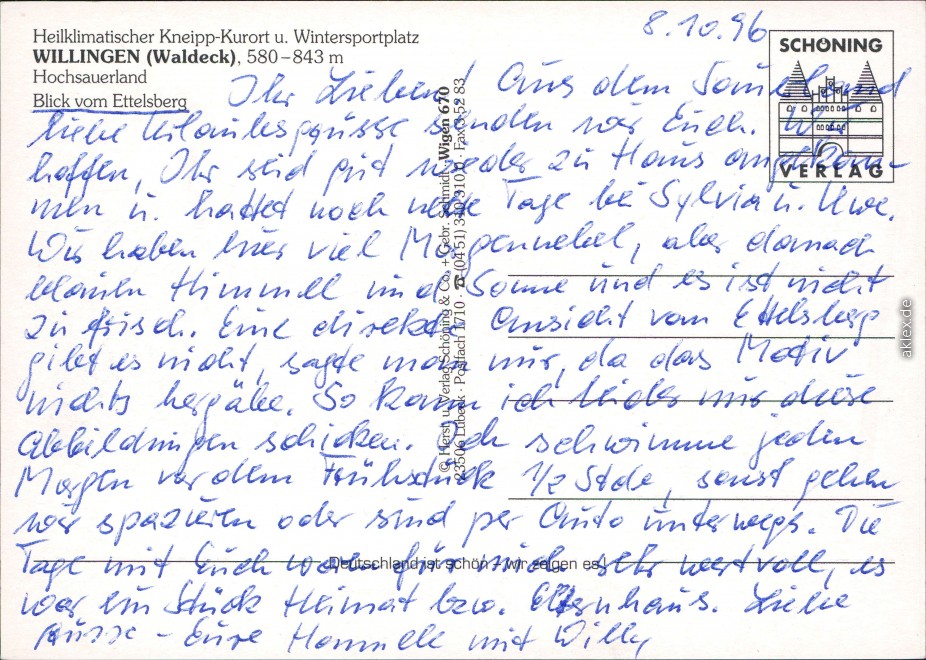 8.10.96
Heilklimatischer Kneipp-Kurort u. Wintersportplatz
WILLINGEN (Waldeck), 580–843 m
Hochsauerland
Blick vom Ettelsberg
SCHÖNING
VERLAG
Ihr Lieben! Aus dem Sauerland
liebe Urlaubsgrüsse senden wir Euch. Wir
hoffen, Ihr seid gut wieder zu Haus angekom-
men u. hattet noch nette Tage bei Sylvia u. Uwe.
Wir haben hier viel Morgennebel, aber danach
blauen Himmel und Sonne und es ist nicht
zu frisch. Eine direkte Ansicht vom Ettelsberg
gibt es nicht, sagte man mir, da das Motiv
nichts hergäbe. So kann ich leider nur diese
Abbildungen schicken. Ich schwimme jeden
Morgen vor dem Frühstück 1/2 Stde, sonst gehen
wir spazieren oder sind per Auto unterwegs. Die
Tage mit Euch waren für mich sehr wertvoll, es
war ein Stück Heimat bzw. Elternhaus. Liebe
Grüsse - Eure mit Willy
© Herst. u. Verlag Schöning & Co. + Gebr. Schmidt · Wigen 670
23506 Lübeck · Postfach 1710 · ☎ (04 51) 3 10 31 0 · Fax 3 52 83
Deutschland ist schön – wir zeigen es
aklex.de